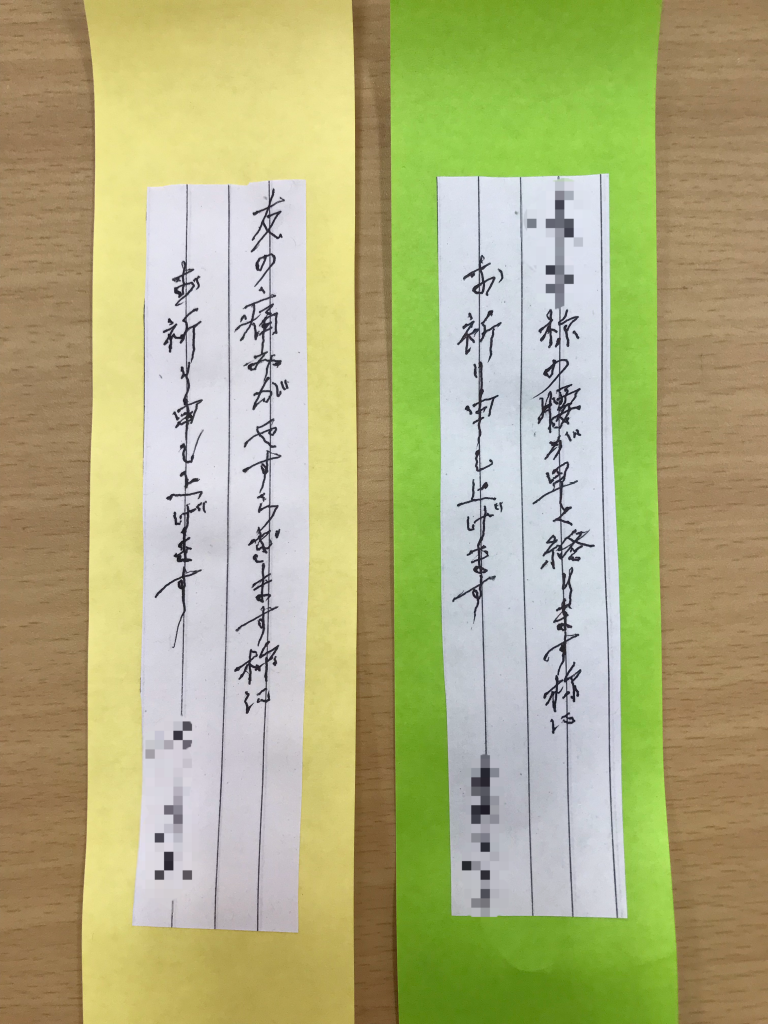 様の腰が早く終ります様に
お祈り申し上げます
友の、痛みがやすらぎます様に
お祈り申し上げます